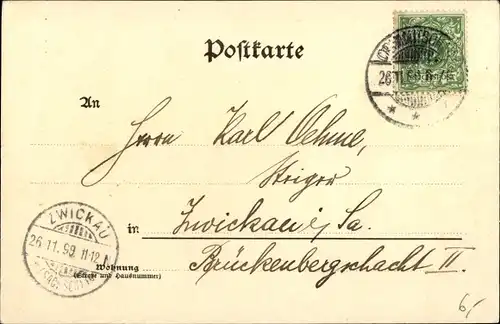 Postkarte
An
Herrn Karl Oehme,
Steiger
in Zwickau i/Sa.
Brückenbergschacht II.
Wohnung
(Straße und Hausnummer)
ZWICKAU
26 11. 99 11-12 N
(SACHSEN)
26 11
6,-